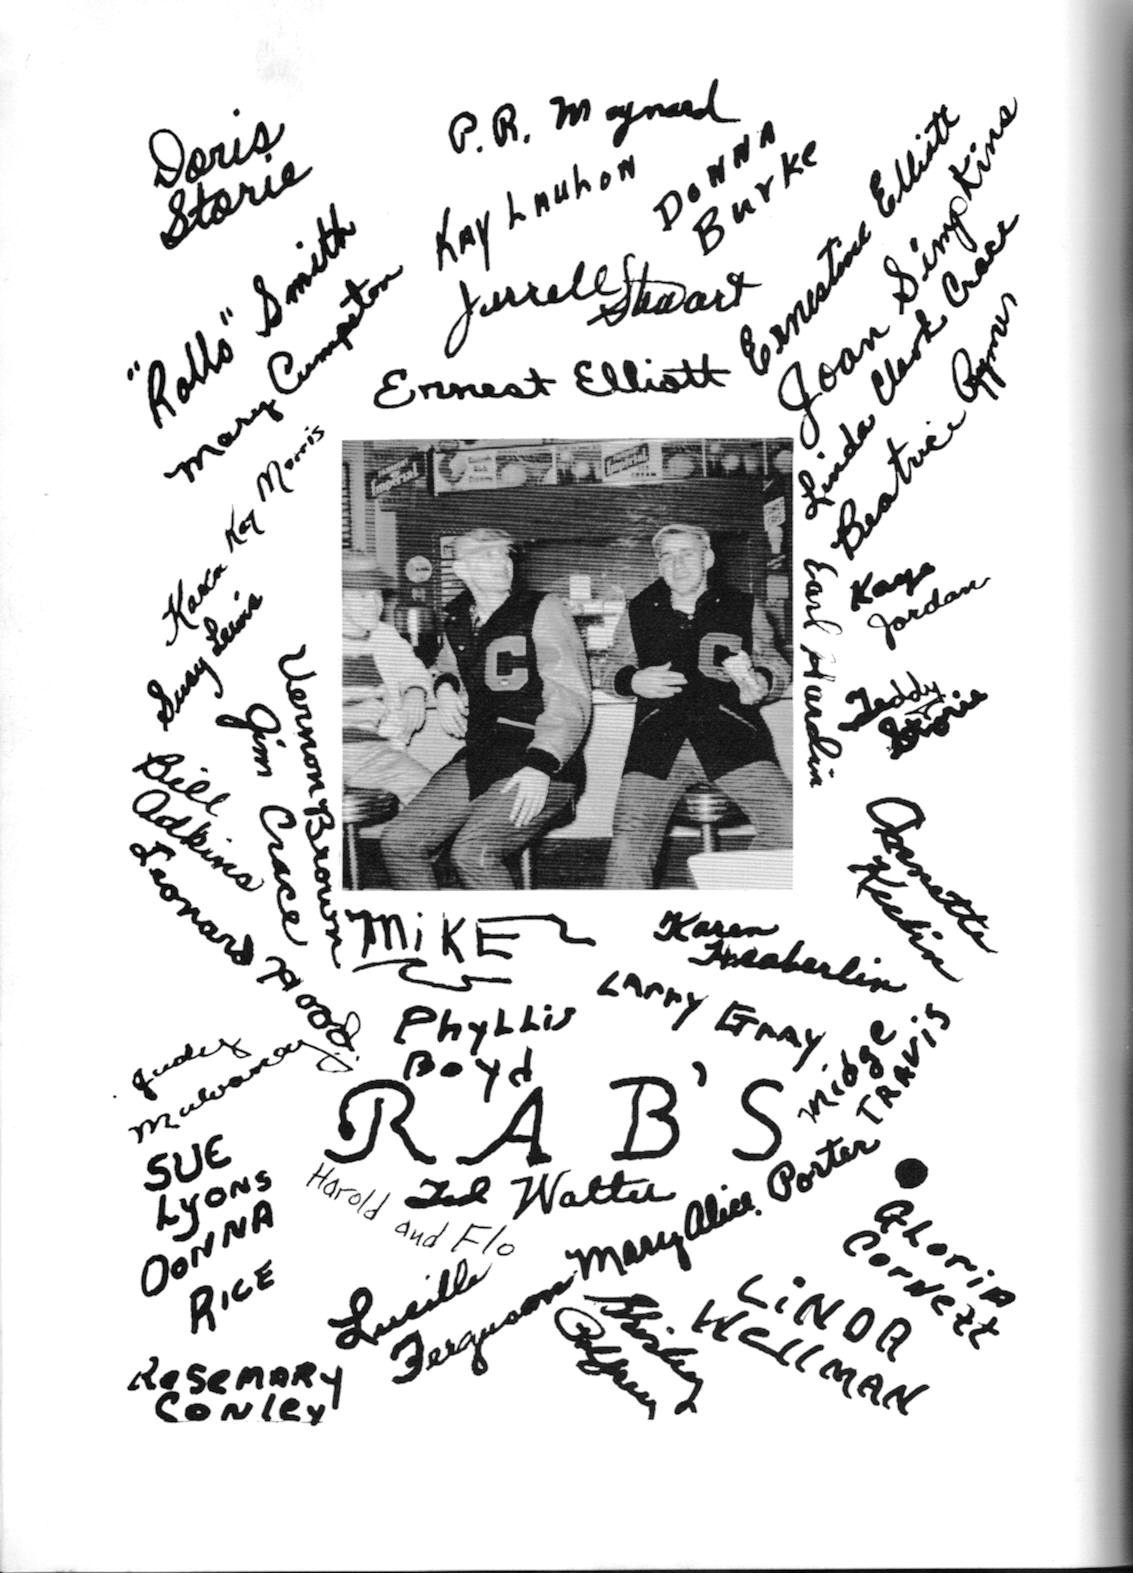 Doris
Storie
P. R. Maynard
Kay Lauhon
Donna
Burke
Jerrell Stewart
Ernest Elliott
"Rollo" Smith
Mary Cumpston
Ernestine Elliott
Joan Simpkins
Linda Clark Crace
Beatrice
Kara Kay Morris
Susy Lewis
Imperial
Imperial
ICE CREAM
C
C
Earl Hardin
Kaye
Jordan
Teddy
Storie
Vernon Brown
Jim Crace
Bill
Adkins
Leonard Hood
Annette
Keelin
MiKE
Karen
Heaberlin
LARRY GRAY
PhyLLis
Boyd
Midge
TRAVIS
Judy
Mulvaney
RAB'S
SUE
LyONS
Ted Walter
Harold and Flo
Mary Alice Porter
DONNA
RICE
Lucille
Ferguson
Shirley
GLORIA
CORNETT
LiNDA
WELLMAN
ROSEMARY
CONLEY